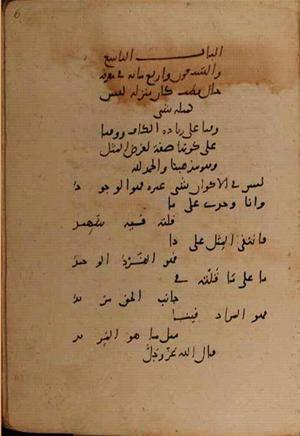 الباب التاسع
والتسعون واربع مائة في معرفة
حال قطب كان منزله ليس
كمثله شي
وقتا على زيادة الكاف ووقتا
على كونها صفة لفرض المثل
وهو مذهبنا والحمد لله
ليس في الاكوان شي غيره فهو الوجود
وانا وحدي على ما
قلته فيه شهيد
فانتفى المثل على ذا
فهو الفرد الوحيد
ما على ما قلته في
جانب الحق مزيد
فهو المراد فينا
مثل ما هو المريد
قال الله عز وجل